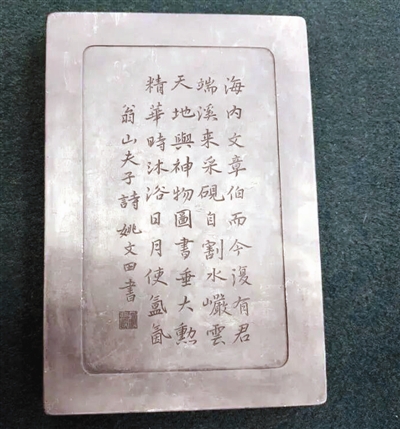 海内文章伯而今復有君
端溪来采硯自割水巖雲
天地與神物圖書垂大勲
精華時沐浴日月使氤氲
翁山夫子詩姚文田書